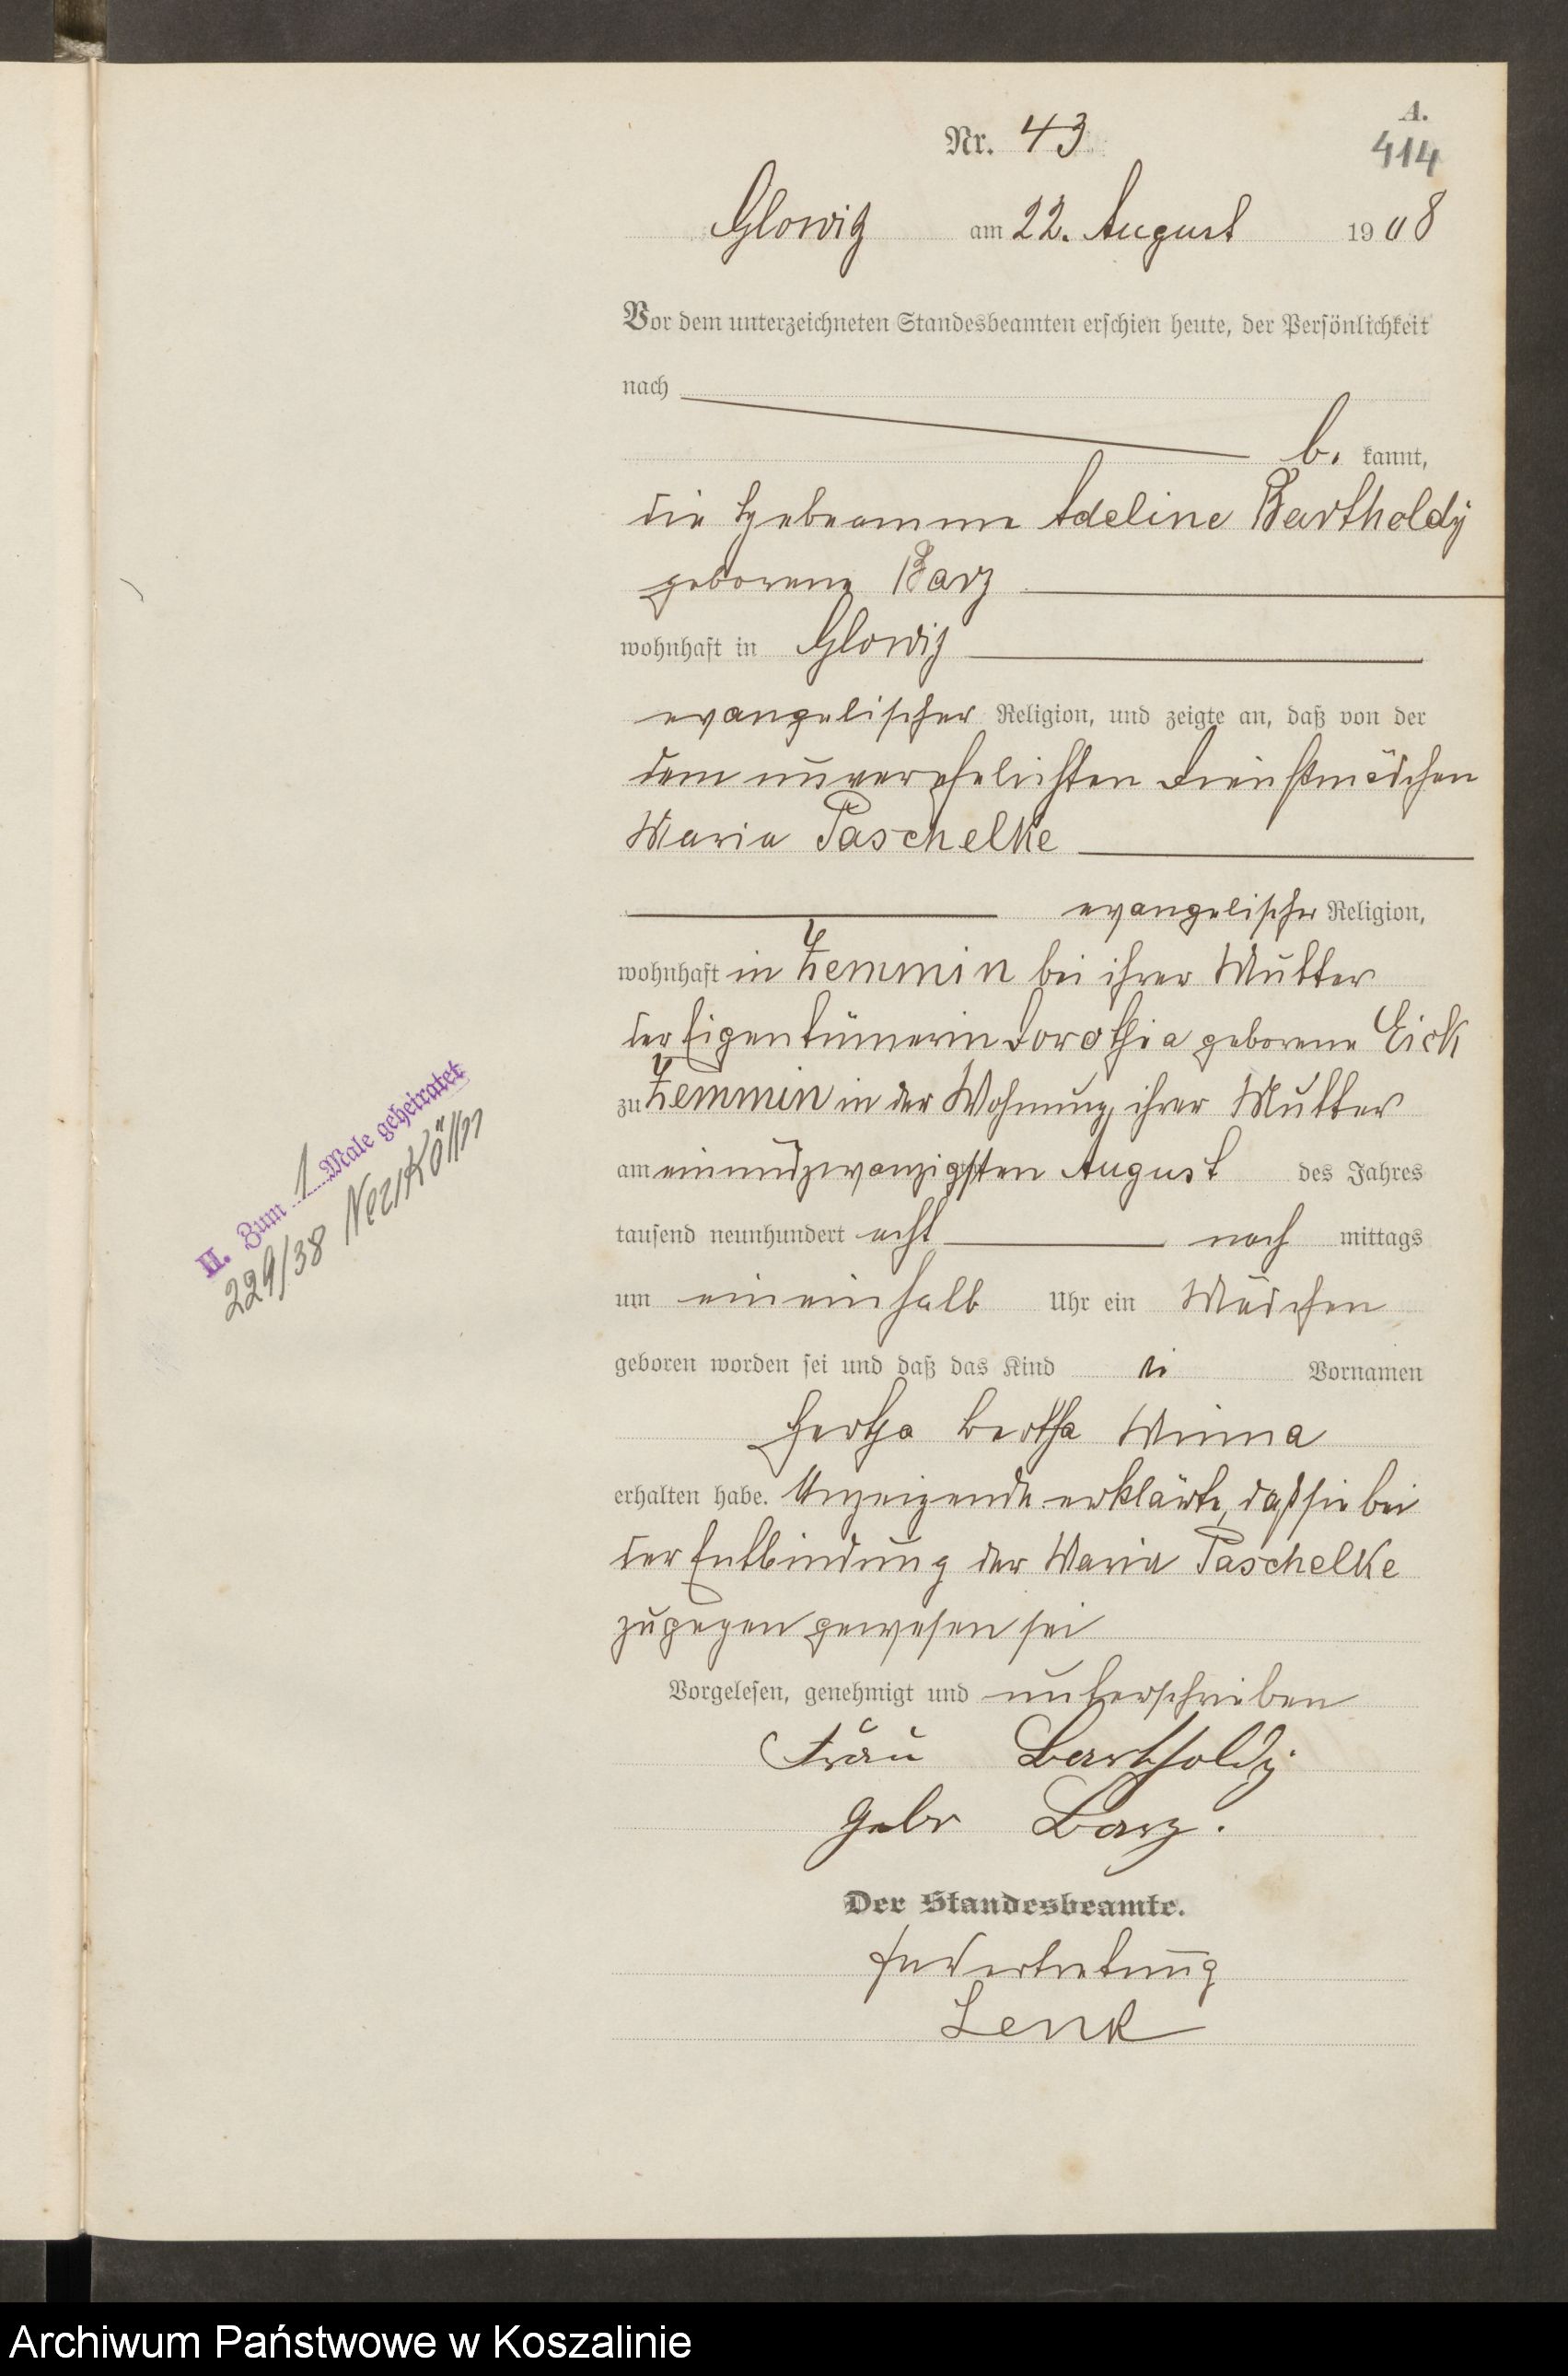 A.
Nr. 43
414
Glowitz am 22. August 1908
Vor dem unterzeichneten Standesbeamten erschien heute, der Persönlichkeit
nach
b. kannt,
die Hebeamme Adeline Bartholdÿ
geborene Barz
wohnhaft in Glowitz
evangelischer Religion, und zeigte an, daß von der
dem unverehelichten Dienstmädchen
Maria Paschelke
evangelischer Religion,
wohnhaft in Zemmin bei ihrer Mutter
der Eigentümerin Dorothea geborene Eick
zu Zemmin in der Wohnung ihrer Mutter
am einundzwanzigsten August des Jahres
tausend neunhundert acht nach mittags
um eineinhalb Uhr ein Mädchen
geboren worden sei und daß das Kind die Vornamen
Hertha Bertha Minna
erhalten habe. Anzeigende erklärte, daß sie bei
der Entbindung der Maria Paschelke
zugegen gewesen sei
Vorgelesen, genehmigt und unterschrieben
Frau Bartholdÿ
gebr Barz.
Der Standesbeamte.
In Vertretung
Lenk
II. Zum 1 Male geheiratet
229/38 Neukölln
Archiwum Państwowe w Koszalinie